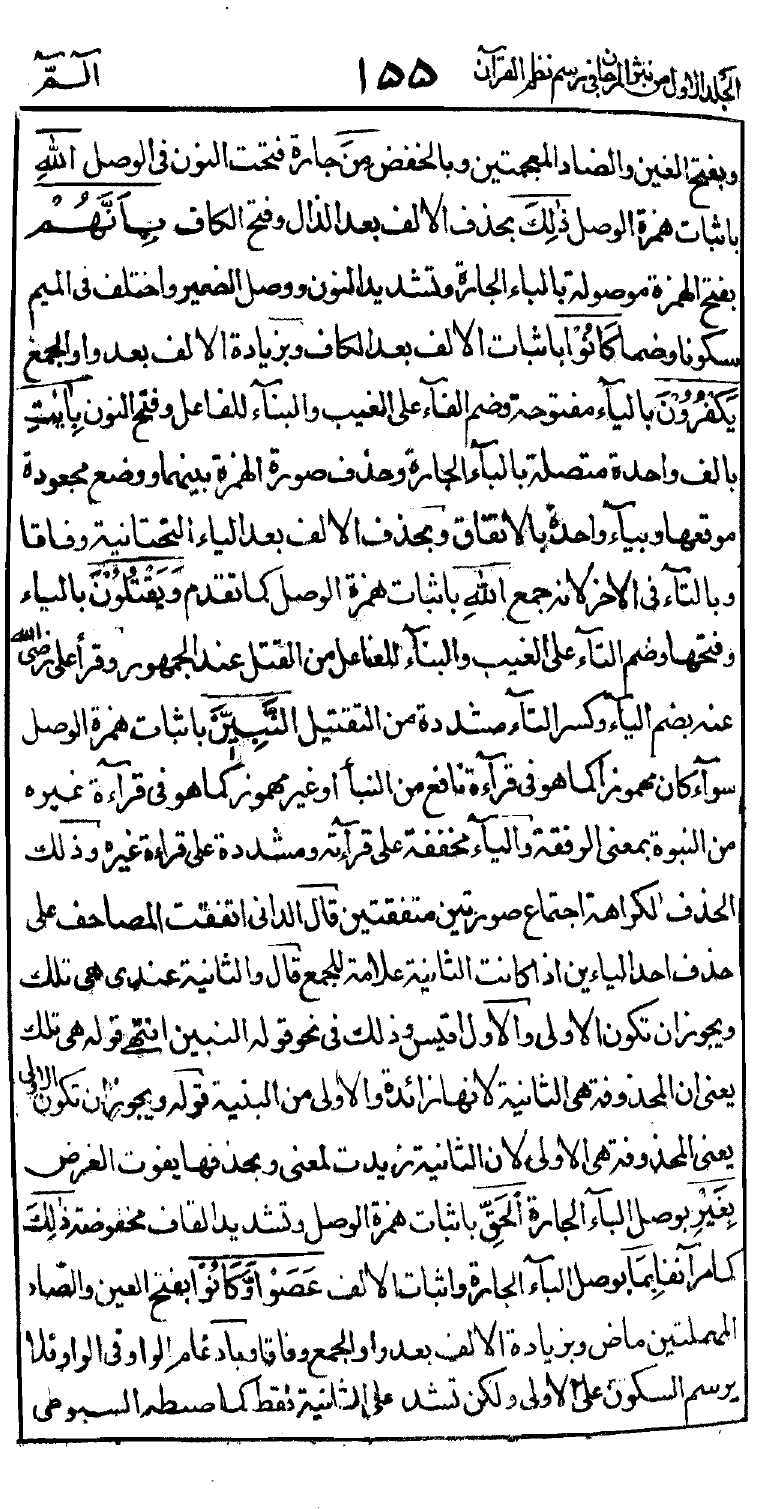 الجلد الاول من نثر المرجان فى رسم نظم القرآن ١٥٥ الٓـمّٓ
وبفتح الغين والضاد المعجمتين وبالخفض مِنَ جارة فتحت النون فى الوصل اللهِ
باثبات همزة الوصل ذٰلِكَ بحذف الالف بعد الذال وفتح الكاف بِاَنَّهُمْ
بفتح الهمزة موصولة بالباء الجارة وتشديد النون ووصل الضمير واختلف فى الميم
سكونا وضما كَانُوْا باثبات الالف بعد الكاف وبزيادة الالف بعد واو الجمع
يَكْفُرُوْنَ بالياء مفتوحة وضم الفآء على الغيب والبنآء للفاعل وفتح النون بِاٰيٰتِ
بالف واحدة متصلة بالبآء الجارة وحذف صورة الهمزة بينهما ووضع مجعودة
موقعها وبيآء واحدة بالاتفاق وبحذف الالف بعد الياء التحتانية وفاقا
وبالتآء فى الاخر لانه جمع اللهِ باثبات همزة الوصل كما تقدم وَيَقْتُلُوْنَ بالياء
وفتحها وضم التآء على الغيب والبنآء للفاعل من القتل عند الجمهور وقرأ على رضى الله
عنه بضم اليآء وكسر التآء مشددة من التقتيل النَّبِيّٖنَ باثبات همزة الوصل
سوآء كان مهموزا كما هو فى قرآءة نافع من النبأ او غير مهموز كما هو فى قرآءة غيره
من النبوة بمعنى الرفعة واليآء مخففة على قرآءته ومشددة على قراءة غيره وذلك
الحذف لكراهة اجتماع صورتين متفقتين قال الدانى اتفقت المصاحف على
حذف احد الياءين اذا كانت الثانية علامة للجمع قال والثانية عندى هى تلك
ويجوز ان تكون الاولى والاول اقيس وذلك فى نحو قوله النبين انتهى قوله هى تلك
يعنى ان المحذوفة هى الثانية لانها زائدة والاولى من البنية قوله ويجوز ان تكون الاولى
يعنى المحذوفة هى الاولى لان الثانية زيدت لمعنى وبحذفها يفوت الغرض
بِغَيْرِ بوصل البآء الجارة الْحَقِّ باثبات همزة الوصل وتشديد القاف مخفوضة ذٰلِكَ
كما مر آنفا بِمَا بوصل البآء الجارة واثبات الالف عَصَوْا وَّكَانُوْا بفتح العين والصّاد
المهملتين ماض وبزيادة الالف بعد واو الجمع وفاقا وبادغام الواو فى الواو فلا
يرسم السكون على الاولى ولكن تشد على الثانية فقط كما ضبطه السيوطى